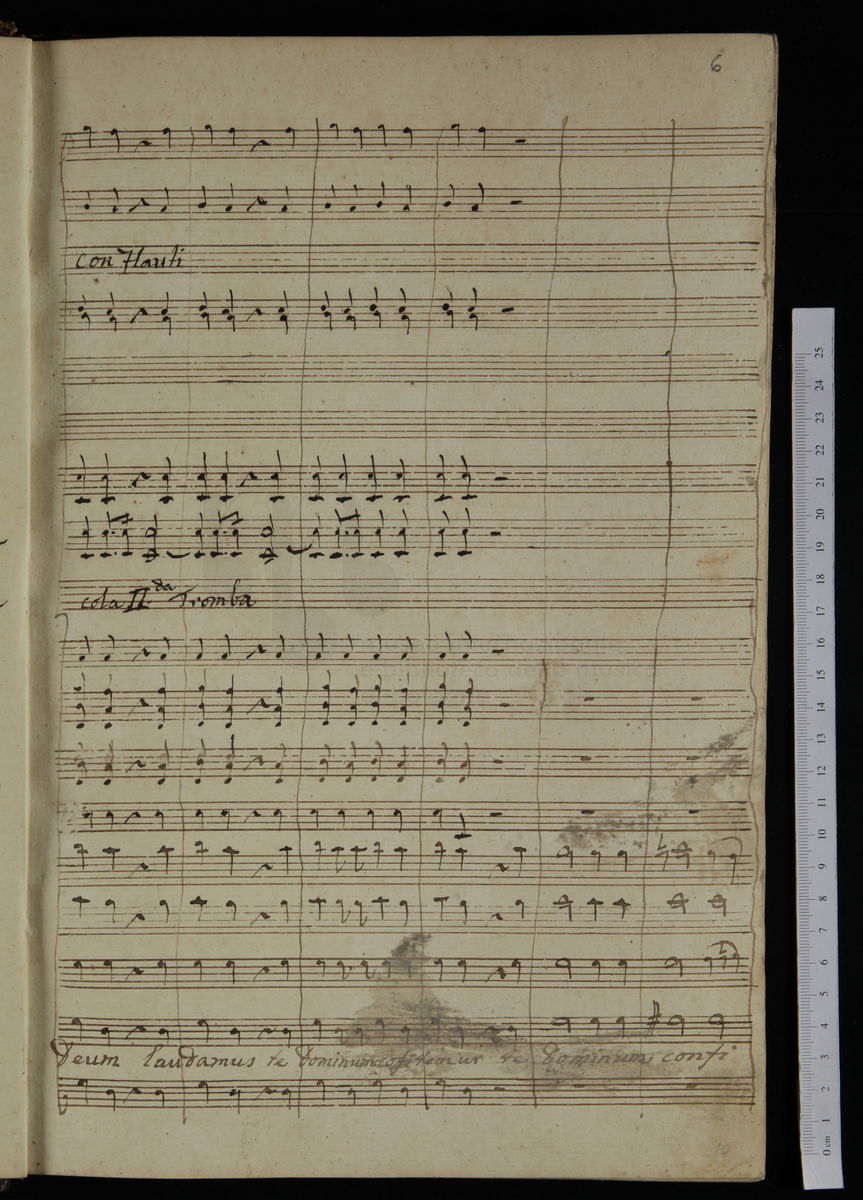 6
con Flauti
cola II da Tromba
Deum laudamus te Dominum confitemur te Dominum confi
10
25
24
23
22
21
20
19
18
17
16
15
14
13
12
11
10
9
8
7
6
5
4
3
2
1
0 cm